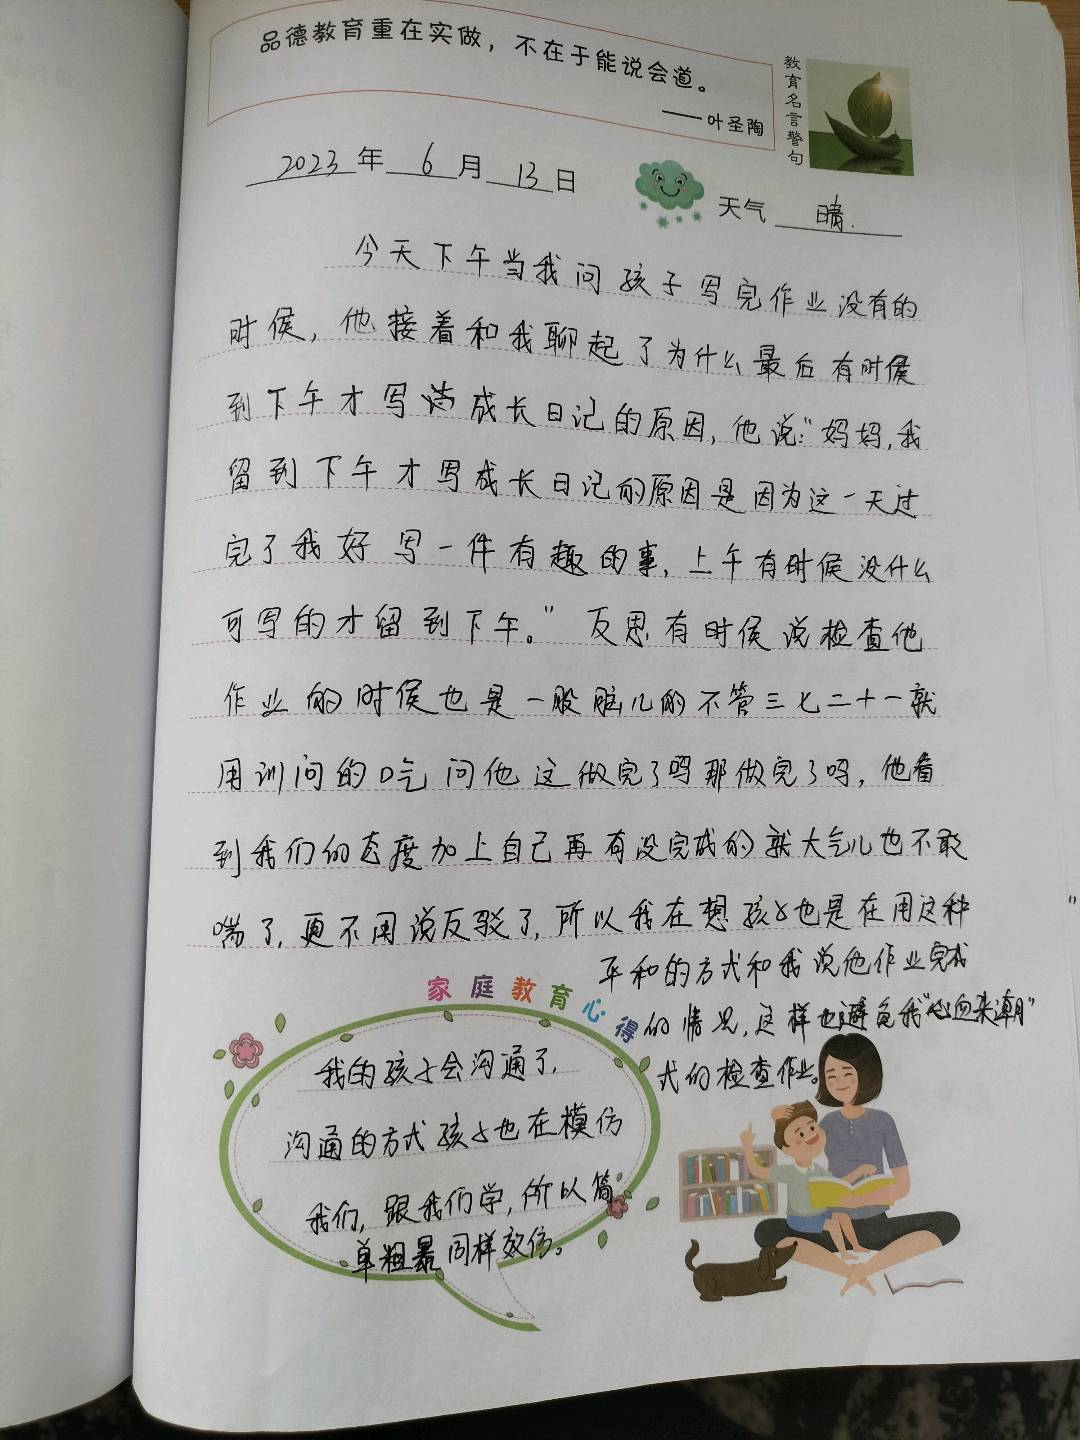 品德教育重在实做，不在于能说会道。
——叶圣陶
教育名言警句
2023年6月13日
天气 晴.
今天下午当我问孩子写完作业没有的
时侯，他接着和我聊起了为什么最后有时侯
到下午才写成长日记的原因，他说："妈妈，我
留到下午才写成长日记的原因是因为这一天过
完了我好写一件有趣的事，上午有时侯没什么
可写的才留到下午。"反思有时侯说检查他
作业的时侯也是一股脑儿的不管三七二十一就
用训问的口气问他这做完了吗那做完了吗，他看
到我们的态度加上自己再有没完成的就大气儿也不敢
喘了，更不用说反驳了，所以我在想孩子也是在用这种
平和的方式和我说他作业完成
的情况，这样也避免我"心血来潮"
式的检查作业。
家庭教育心得
我的孩子会沟通了，
沟通的方式孩子也在模仿
我们，跟我们学，所以简
单粗暴同样效仿。